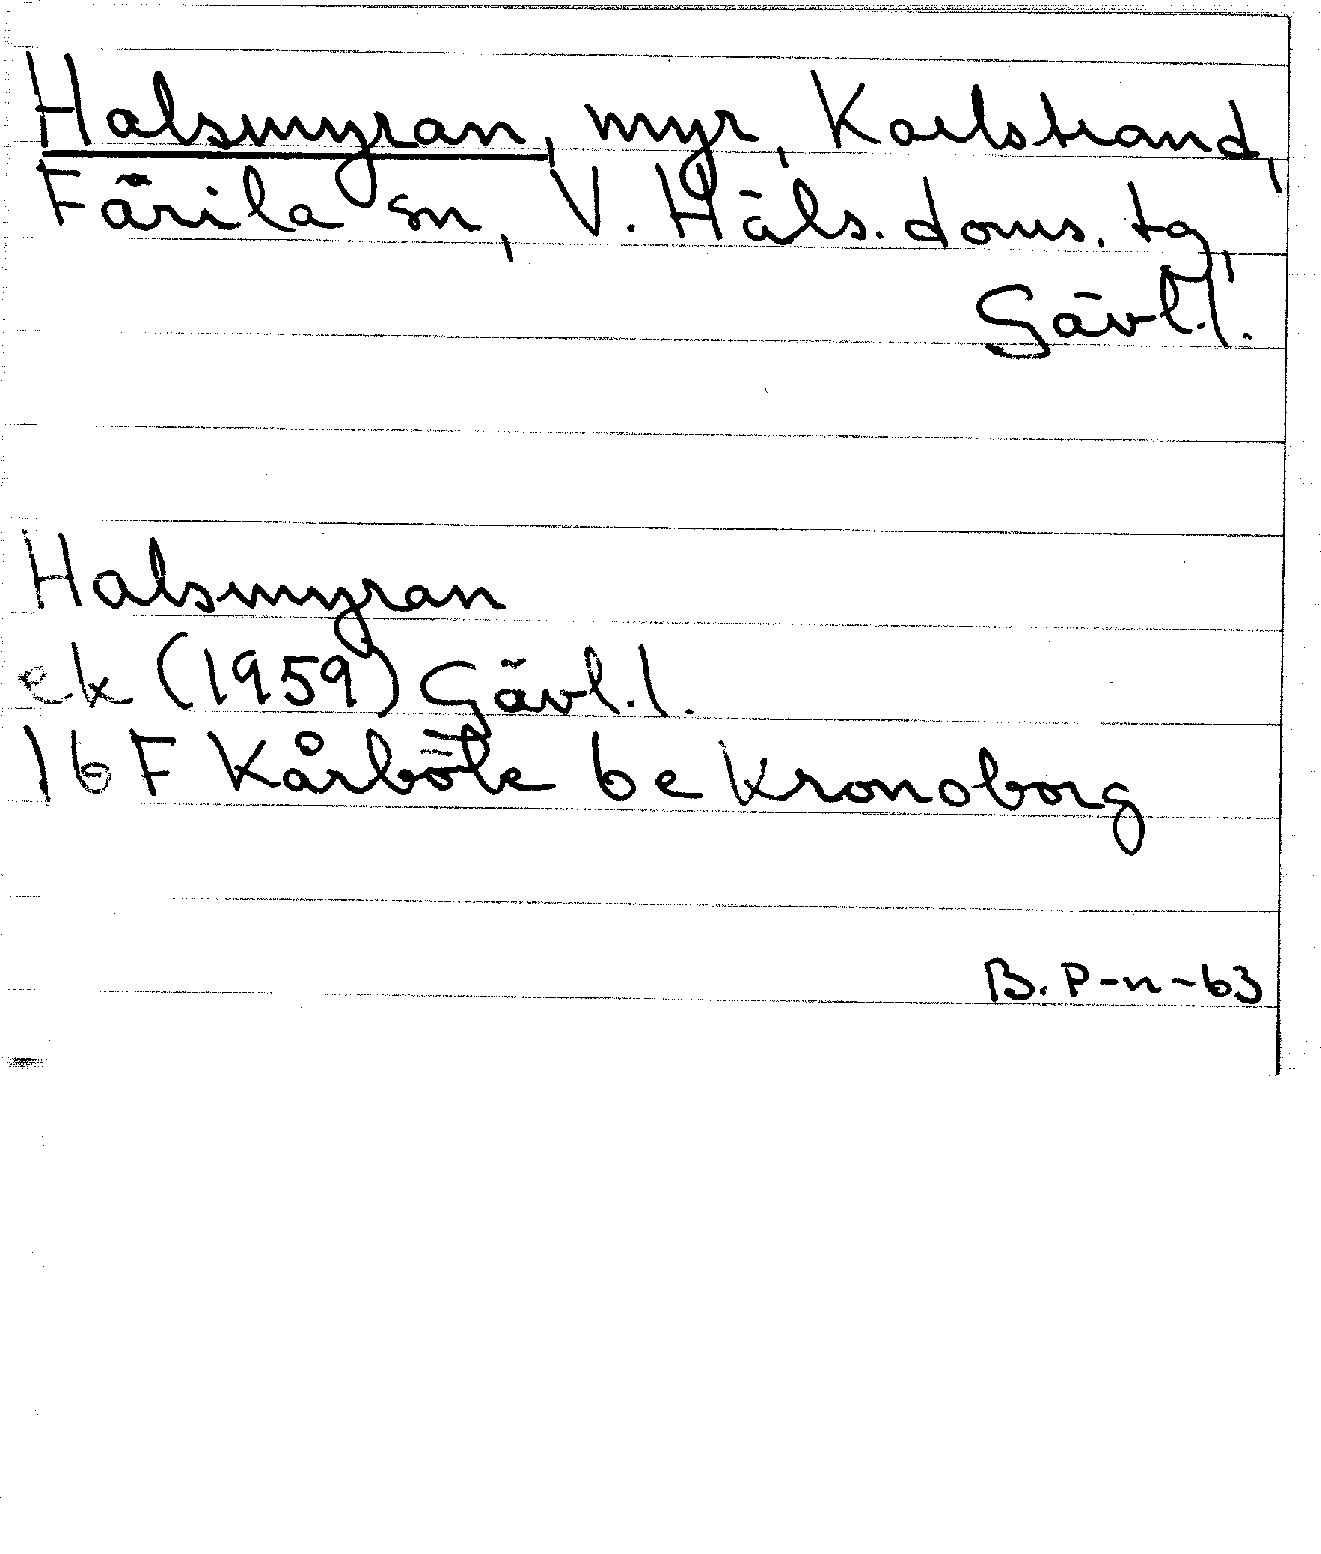 Halsmyran, myr, Karlstrand,
Färila sn, V. Häls. doms. tg,
Gävl. l.
Halsmyran
ek (1959) Gävl. l.
16 F Kårböle 6e Kronoborg
B. P-n-63